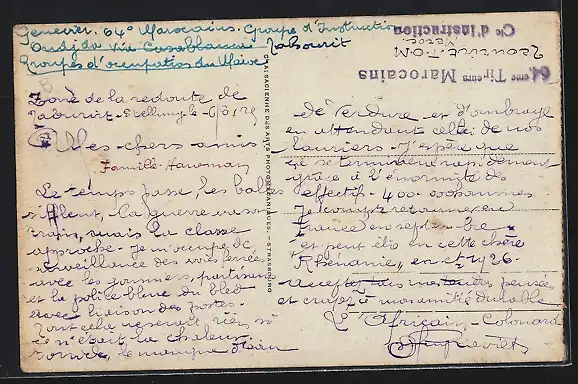 Genevier. 64e Marocains. Groupe d'Instruction
Oudjda via Casablanca Taourirt
Groupes d'occupation du Maroc
64eme Tirrs Marocains
Cie d'Instruction
Taourirt. T.O.M.
Maroc.
Zone de la redoute de
Mes chers amis
Famille Haneman
Le temps passe, les balles
sifflent, la guerre va son
train, mais la classe
approche. Je m'occupe de
surveillance des voies ferrées
avec les goumiers, partisans
et la police bleue du bled
avec liaison des postes.
Tout cela rien si
ce n'était la chaleur
torride, le manque d'eau
de Verdure et d'ombrage
en attendant celui de nos
lauriers. J'espère que
ça se terminera rapidement
grâce à l'énormité des
effectifs. 400.000 hommes
Je compte retourner en
France en septembre
et peut être en cette chère
"Rhénanie" en 1926.
Acceptez mes pensées
et croyez à mon amitié durable
L'Africain - Colonard
ALSACIENNE DES ARTS PHOTOMÉCANIQUES - STRASBOURG